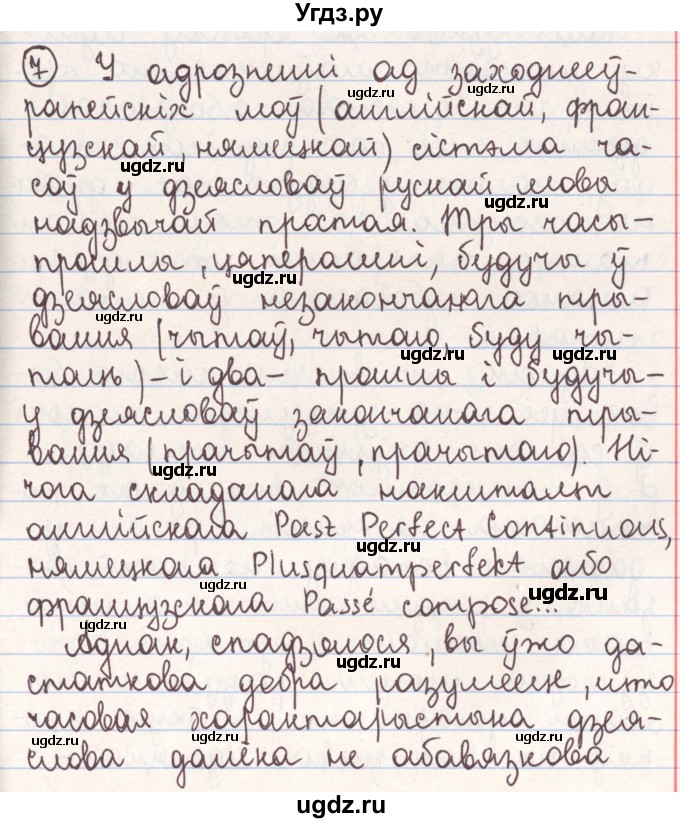 Угдз.ру
7 У адрозненні ад заходнееў-
рапейскіх моў (англійскай, фран-
цузскай, нямецкай) сістэма ча-
соў у дзеясловаў рускай мовы
надзвычай простая. Тры часы-
прошлы, цяперашні, будучы ў
дзеясловаў незакончанага тры-
вання (чытаў, чытаю, буду чы-
таць) - і два - прошлы і будучы-
у дзеясловаў закончанага тры-
вання (прачытаў, прачытаю). Ні-
чога складанага накшталт
англійскага Past Perfect Continuous,
нямецкага Plusquamperfekt або
французскага Passé compose...
Аднак, спадзялося, вы ўжо да-
статкова добра разумееце, што
часавая характарыстыка дзея-
слова далёка не абавязкова
ugdz.ru